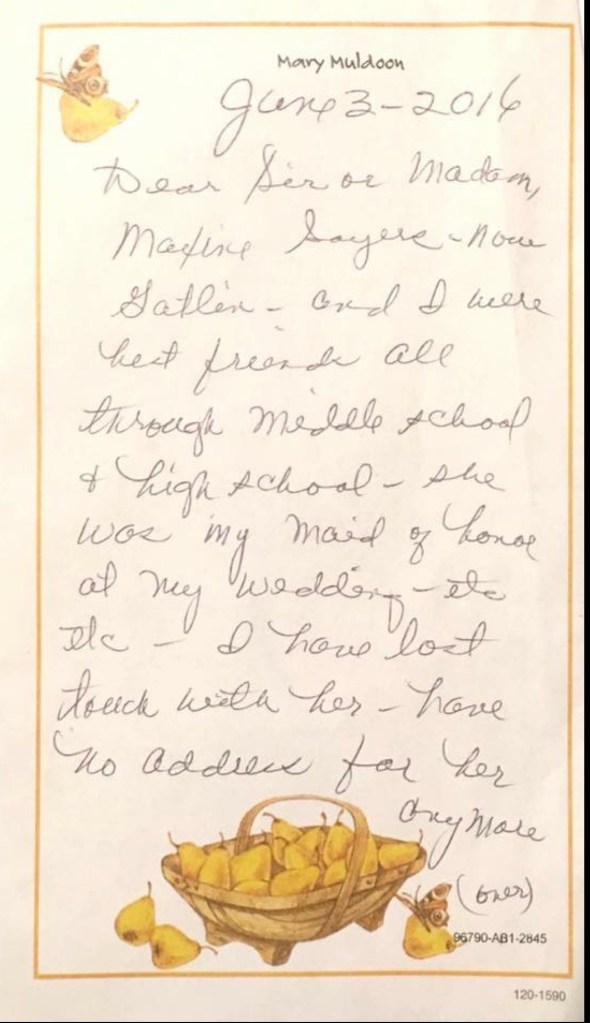 Mary Muldoon
June 3 - 2016
Dear Sir or Madam,
Maxine Sayers - now
Gatlin - and I were
best friends all
through middle school
& high school - she
was my maid of honor
at my wedding - etc
etc - I have lost
touch with her - have
no address for her
anymore
(over)
96790-AB1-2845
120-1590